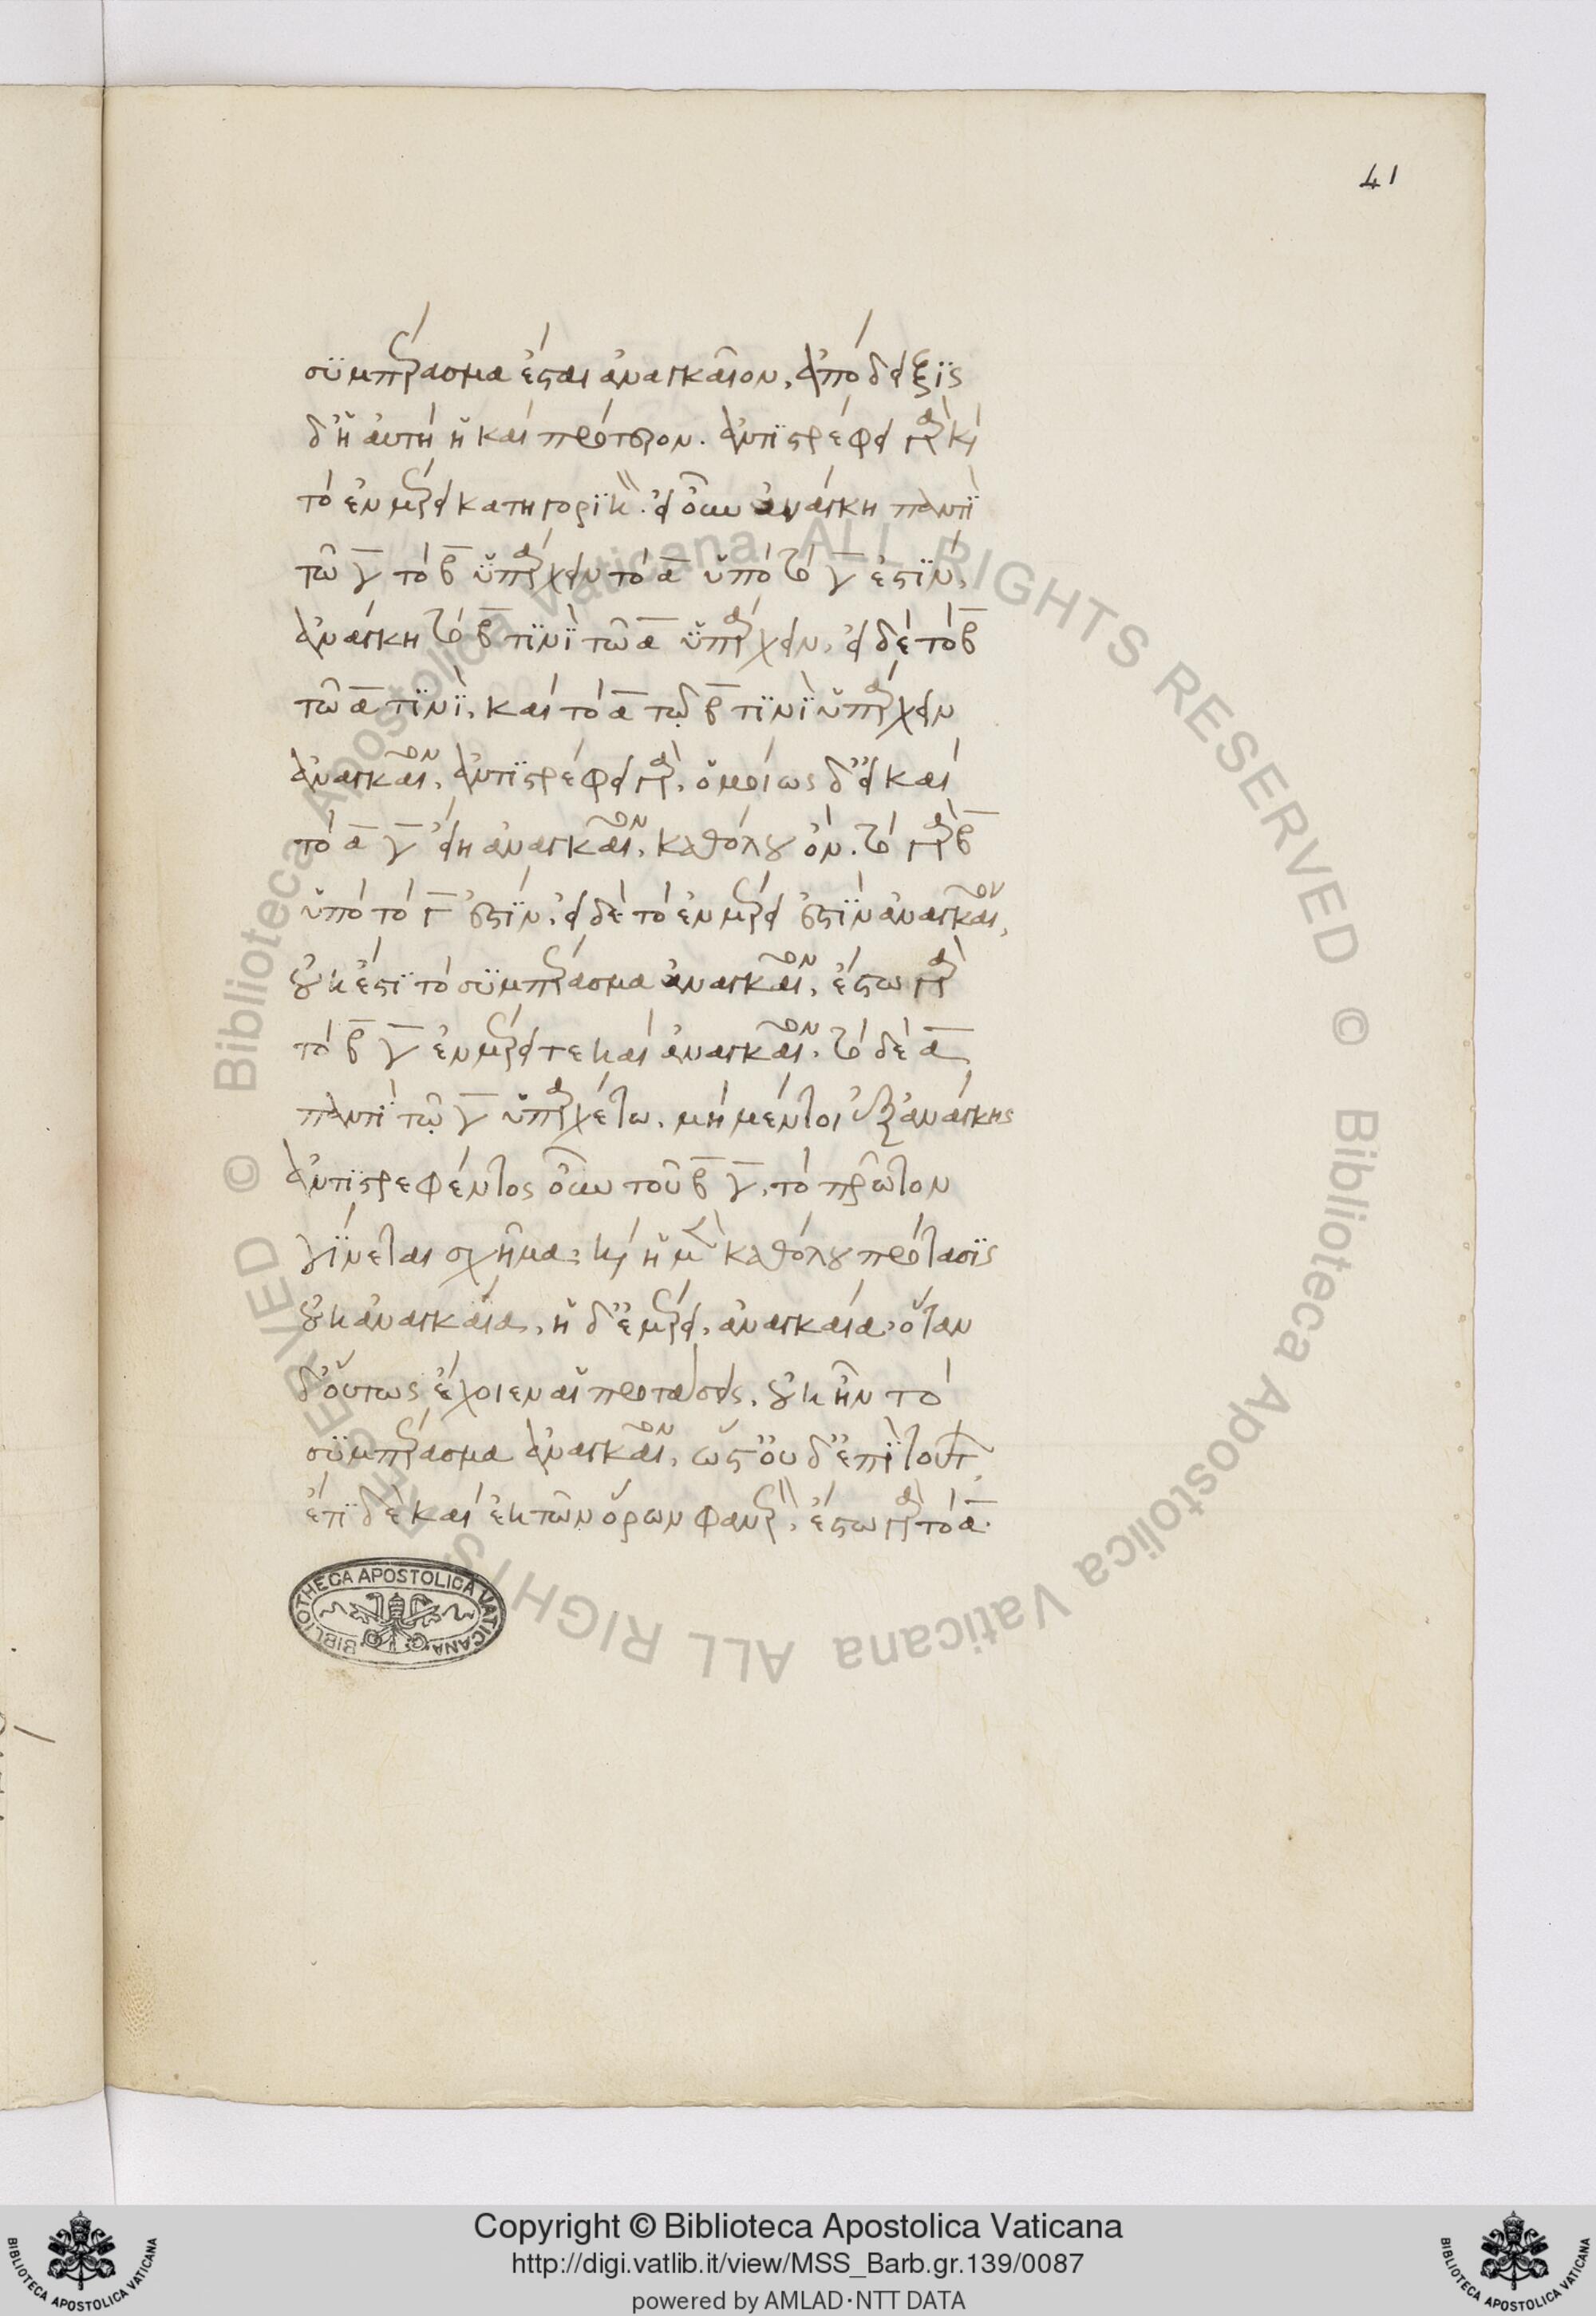 41
συμπέρασμα ἔσται ἀναγκαῖον. ἀπόδειξις
δ' ἡ αὐτὴ ἣ καὶ πρότερον. ἀντιστρέφει γὰρ καὶ
τὸ ἐν μέρει κατηγορικόν. εἰ οὖν ἀνάγκη παντὶ
τῷ γ τὸ β ὑπάρχειν τὸ α ὑπὸ τὸ γ ἐστίν,
ἀνάγκη τὸ β τινὶ τῷ α ὑπάρχειν. εἰ δὲ τὸ β
τῷ α τινί, καὶ τὸ α τῷ β τινὶ ὑπάρχειν
ἀναγκαῖον. ἀντιστρέφει γάρ. ὁμοίως δ' εἰ καὶ
τὸ α γ εἴη ἀναγκαῖον, καθόλου ὄν. τὸ γὰρ β
ὑπὸ τὸ γ ἐστίν. εἰ δὲ τὸ ἐν μέρει ἐστὶν ἀναγκαῖον,
οὐκ ἔστι τὸ συμπέρασμα ἀναγκαῖον. ἔστω γὰρ
τὸ β γ ἐν μέρει τε καὶ ἀναγκαῖον. τὸ δὲ α
παντὶ τῷ γ ὑπαρχέτω. μὴ μέντοι ἐξ ἀνάγκης
ἀντιστρεφέντος οὖν τοῦ β γ, τὸ πρῶτον
γίνεται σχῆμα. καὶ ἡ μὲν καθόλου πρότασις
οὐκ ἀναγκαία, ἡ δ' ἐν μέρει, ἀναγκαία. ὅταν
δ' οὕτως ἔχοιεν αἱ προτάσεις, οὐκ ἦν τὸ
συμπέρασμα ἀναγκαῖον, ὥστ' οὐδ' ἐπὶ τούτων,
ἔτι δὲ καὶ ἐκ τῶν ὅρων φανερόν. ἔστω γὰρ τὸ α.
BIBLIOTHECA APOSTOLICA VATICANA
© Biblioteca Apostolica Vaticana ALL RIGHTS RESERVED © Biblioteca Apostolica Vaticana ALL RIGHTS RESERVED
Copyright © Biblioteca Apostolica Vaticana
http://digi.vatlib.it/view/MSS_Barb.gr.139/0087
powered by AMLAD·NTT DATA
BIBLIOTECA APOSTOLICA VATICANA
BIBLIOTECA APOSTOLICA VATICANA